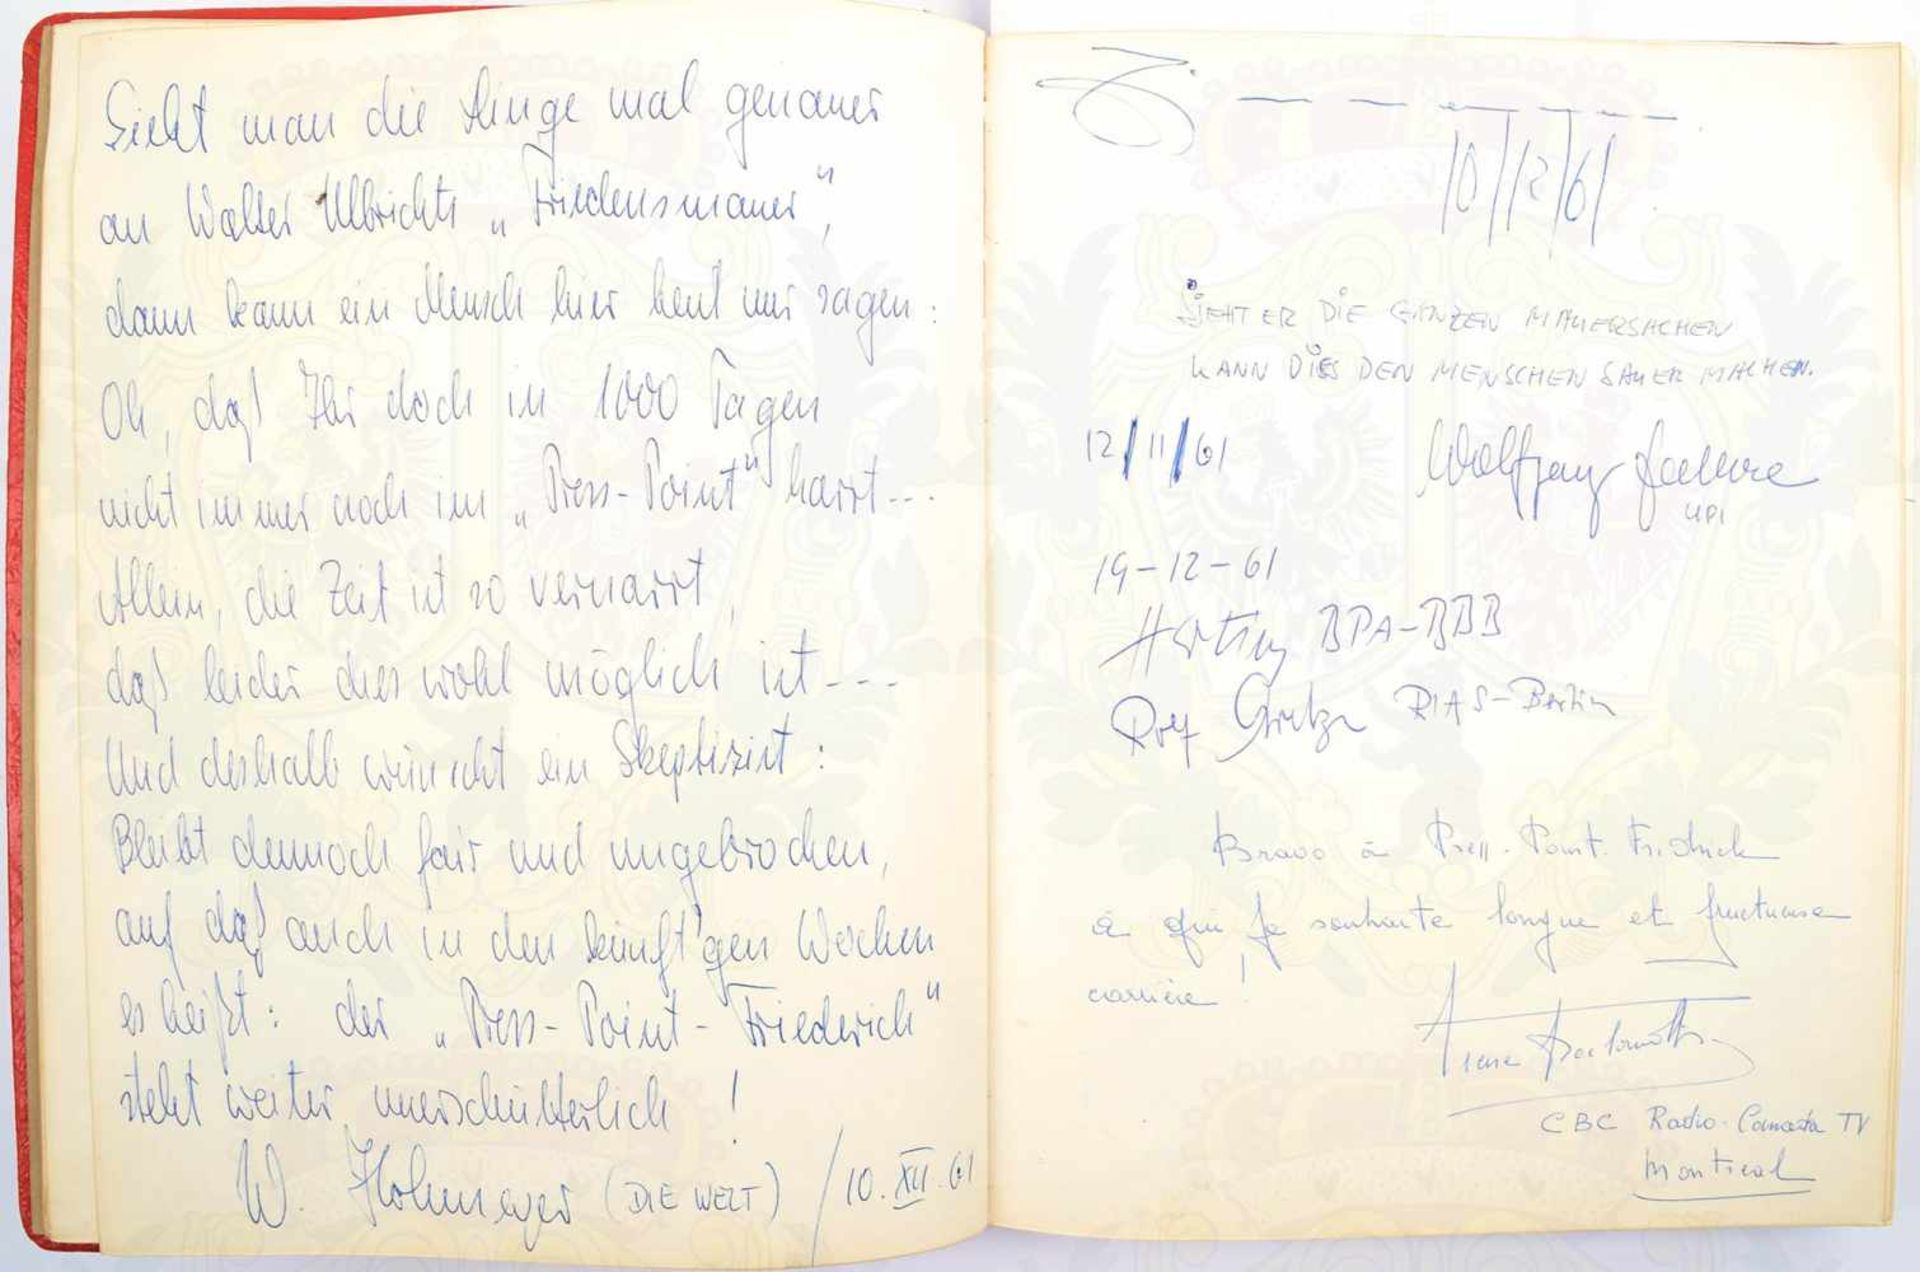 Sieht man die Dinge mal genauer
an Walter Ulbrichts „Friedensmauer“,
dann kann ein Mensch hier heut nur sagen:
Oh, daß Ihr doch in 1000 Tagen
nicht immer noch im „Press-Point“ harrt---
Allein, die Zeit ist so vernarrt,
daß leider dies wohl möglich ist---
Und deshalb wünscht ein Skeptizist:
Bleibt dennoch fair und ungebrochen,
auf daß auch in den künft'gen Wochen
es heißt: der „Press-Point-Friederich“
steht weiter unerschütterlich!
W. Hohmeyer (DIE WELT) / 10. XII. 61
10/12/61
SIEHT ER DIE GANZEN MAUERSACHEN
KANN DIES DEN MENSCHEN SAUER MACHEN.
12/11/61 Wolfgang
UPI
19-12-61
BPA-BBB
Rolf RIAS-Berlin
Bravo à Press-Point
à qui je souhaite longue et fructueuse
carrière!
CBC Radio-Canada TV
Montreal